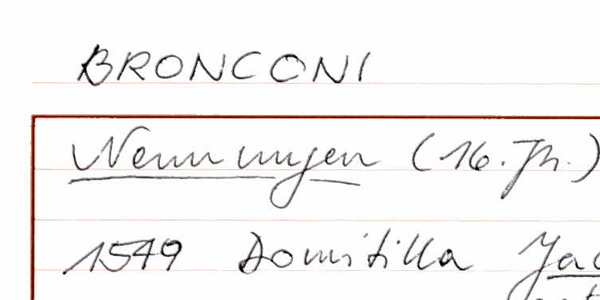 BRONCONI
Nennungen (16. Jh.)
1549 Domitilla Jac